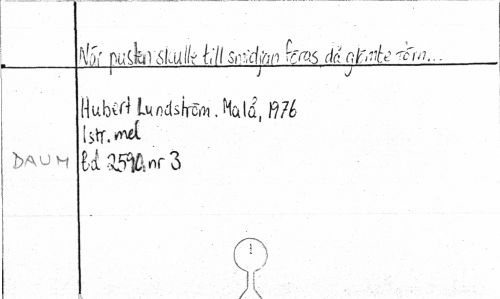 När pusten skulle till smidjan föras då glömte
Hubert Lundström. Malå, 1976
1 str. mel
DAUM Bd 2590 nr 3